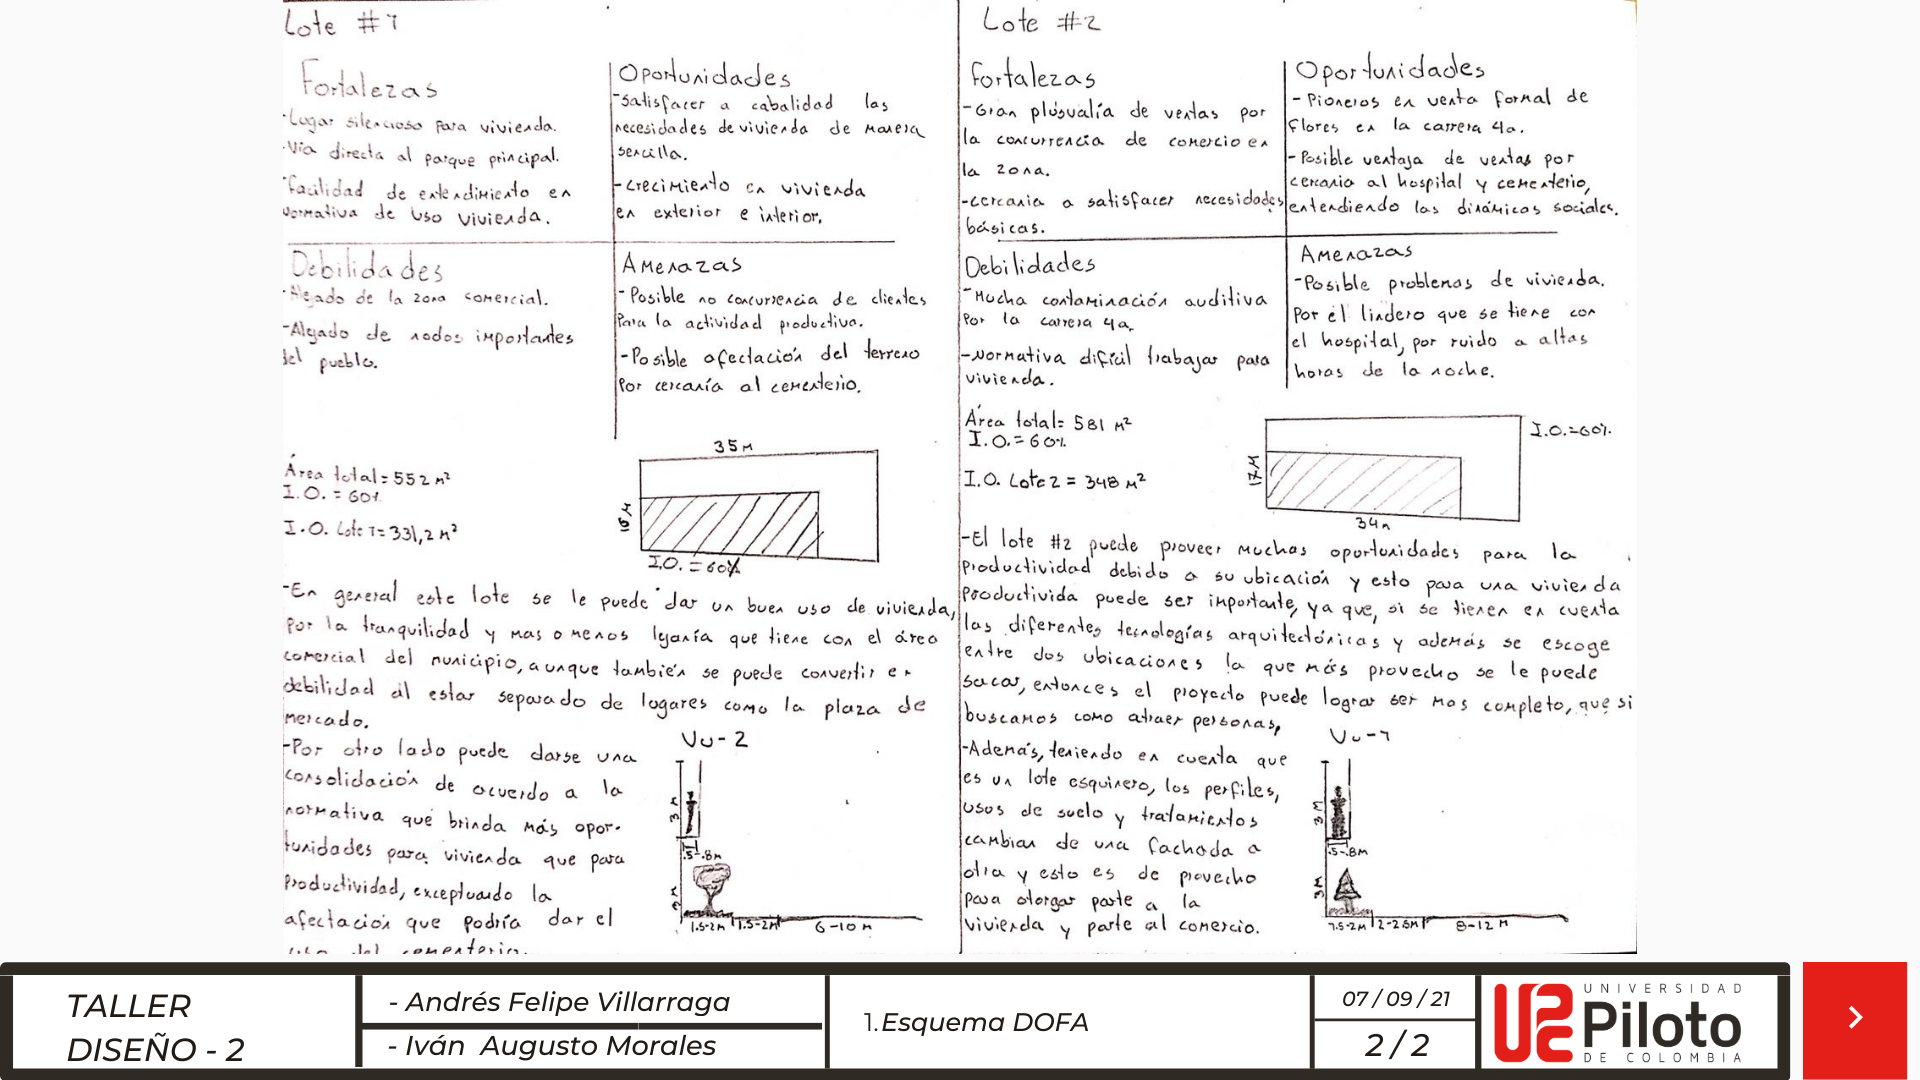 Lote #1
Fortalezas
-Lugar silencioso para vivienda.
-Vía directa al parque principal.
-facilidad de entendimiento en
normativa de uso vivienda.
Oportunidades
-satisfacer a cabalidad las
necesidades de vivienda de manera
sencilla.
-crecimiento en vivienda
en exterior e interior.
Debilidades
-Alejado de la zona comercial.
-Alejado de nodos importantes
del pueblo.
Amenazas
-Posible no concurrencia de clientes
Para la actividad productiva.
-Posible afectación del terreno
Por cercanía al cementerio.
Área total=552 m²
I.O. = 60%
I.O. Lote 1=331,2 m²
35 M
16 M
I.O. = 60%
-En general este lote se le puede dar un buen uso de vivienda,
Por la tranquilidad y mas o menos lejanía que tiene con el área
comercial del municipio, aunque también se puede convertir en
debilidad al estar separado de lugares como la plaza de
mercado.
-Por otro lado puede darse una
consolidación de acuerdo a la
normativa que brinda más opor-
tunidades para vivienda que para
Productividad, exceptuando la
afectación que podría dar el
uso del cementerio.
Vu-2
3 M
.5-.8m
3 M
1.5-2M
1.5-2M
6-10 M
Lote #2
Fortalezas
-Gran plusvalía de ventas por
la concurrencia de comercio en
la zona.
-cercania a satisfacer necesidades
básicas.
Oportunidades
-Pioneros en venta formal de
Flores en la carrera 4a.
-Posible ventaja de ventas por
cercania al hospital y cementerio,
entendiendo las dinámicas sociales.
Debilidades
-Mucha contaminación auditiva
Por la carrera 4a.
-Normativa dificil trabajar para
vivienda.
Amenazas
-Posible problemas de vivienda.
Por el lindero que se tiene con
el hospital, por ruido a altas
horas de la noche.
Área total= 581 m²
I.O.= 60%
I.O. Lote 2 = 348 m²
I.O.=60%
17 M
34 m
-El lote #2 puede proveer muchas oportunidades para la
Productividad debido a su ubicación y esto para una vivienda
Productivida puede ser importante, ya que, si se tienen en cuenta
las diferentes tecnologías arquitectónicas y además se escoge
entre dos ubicaciones la que más provecho se le puede
sacar, entonces el proyecto puede lograr ser mas completo, que si
buscamos como atraer personas,
-Además, teniendo en cuenta que
es un lote esquinero, los perfiles,
usos de suelo y tratamientos
cambian de una fachada a
otra y esto es de provecho
para otorgar parte a la
vivienda y parte al comercio.
Vu-1
3 M
.5-.8M
3M
1.5-2M
2-2.5M
8-12 M
TALLER
DISEÑO - 2
- Andrés Felipe Villarraga
- Iván Augusto Morales
1.Esquema DOFA
07 / 09 / 21
2 / 2
UNIVERSIDAD
Piloto
DE COLOMBIA